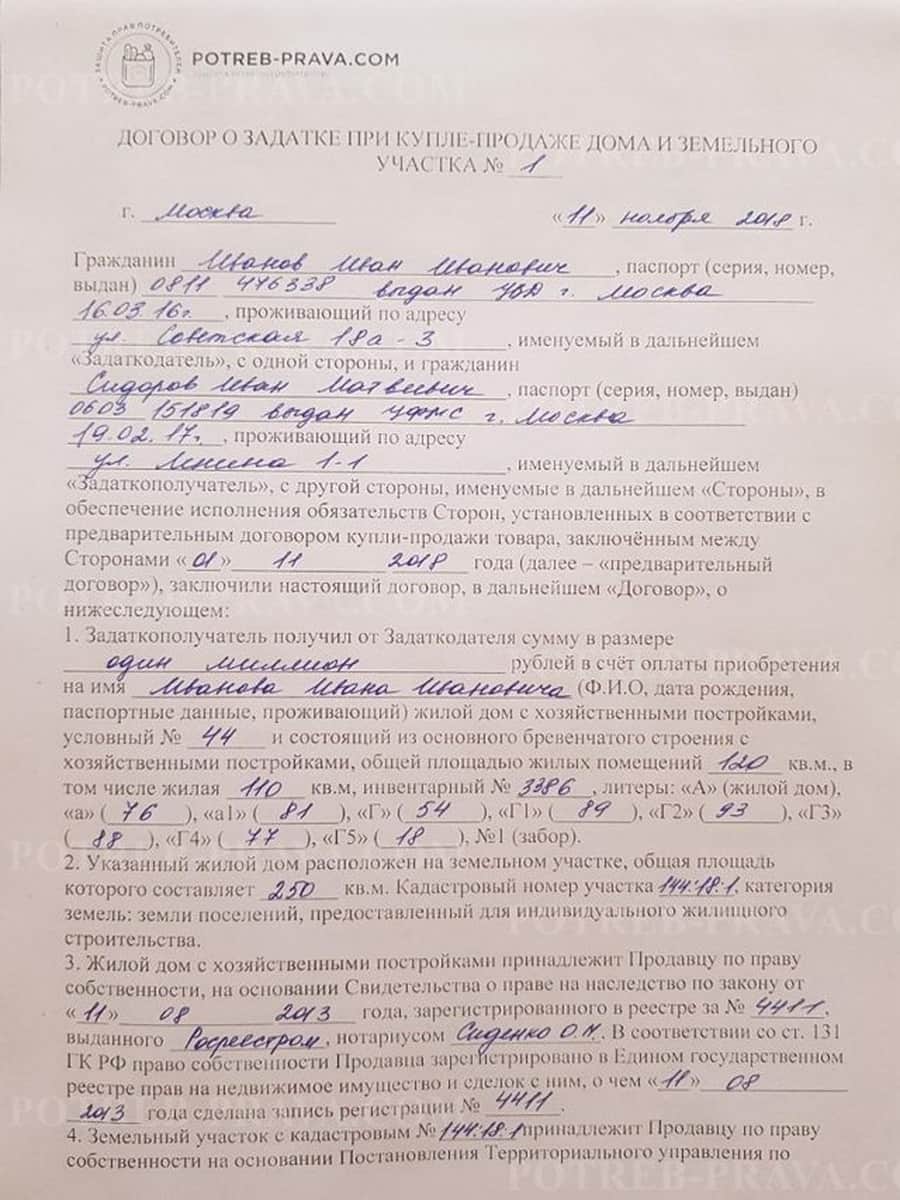 ЗАЩИТА ПРАВ ПОТРЕБИТЕЛЕЙ
POTREB-PRAVA.COM
POTREB-PRAVA.COM
ДОГОВОР О ЗАДАТКЕ ПРИ КУПЛЕ-ПРОДАЖЕ ДОМА И ЗЕМЕЛЬНОГО
УЧАСТКА № 1
г. Москва «11» ноября 2018 г.
Гражданин Иванов Иван Иванович, паспорт (серия, номер,
выдан) 0811 476338 выдан УВД г. Москва
16.03.16г., проживающий по адресу
ул. Советская 18а - 3, именуемый в дальнейшем
«Задаткодатель», с одной стороны, и гражданин
Сидоров Иван Матвеевич, паспорт (серия, номер, выдан)
0603 151819 выдан УФМС г. Москва
19.02.17г., проживающий по адресу
ул. Ленина 1-1, именуемый в дальнейшем
«Задаткополучатель», с другой стороны, именуемые в дальнейшем «Стороны», в
обеспечение исполнения обязательств Сторон, установленных в соответствии с
предварительным договором купли-продажи товара, заключённым между
Сторонами «01» 11 2018 года (далее – «предварительный
договор»), заключили настоящий договор, в дальнейшем «Договор», о
нижеследующем:
1. Задаткополучатель получил от Задаткодателя сумму в размере
один миллион рублей в счёт оплаты приобретения
на имя Иванова Ивана Ивановича (Ф.И.О, дата рождения,
паспортные данные, проживающий) жилой дом с хозяйственными постройками,
условный № 44 и состоящий из основного бревенчатого строения с
хозяйственными постройками, общей площадью жилых помещений 120 кв.м., в
том числе жилая 110 кв.м, инвентарный № 3386, литеры: «А» (жилой дом),
«а» (76), «а1» (81), «Г» (54), «Г1» (89), «Г2» (93), «Г3»
(88), «Г4» (77), «Г5» (18), №1 (забор).
2. Указанный жилой дом расположен на земельном участке, общая площадь
которого составляет 250 кв.м. Кадастровый номер участка 144:18:1. категория
земель: земли поселений, предоставленный для индивидуального жилищного
строительства.
3. Жилой дом с хозяйственными постройками принадлежит Продавцу по праву
собственности, на основании Свидетельства о праве на наследство по закону от
«11» 08 2013 года, зарегистрированного в реестре за № 4411,
выданного Росреестром, нотариусом Сиденко О.М. В соответствии со ст. 131
ГК РФ право собственности Продавца зарегистрировано в Едином государственном
реестре прав на недвижимое имущество и сделок с ним, о чем «11» 08
2013 года сделана запись регистрации № 4411.
4. Земельный участок с кадастровым № 144:18:1 принадлежит Продавцу по праву
собственности на основании Постановления Территориального управления по